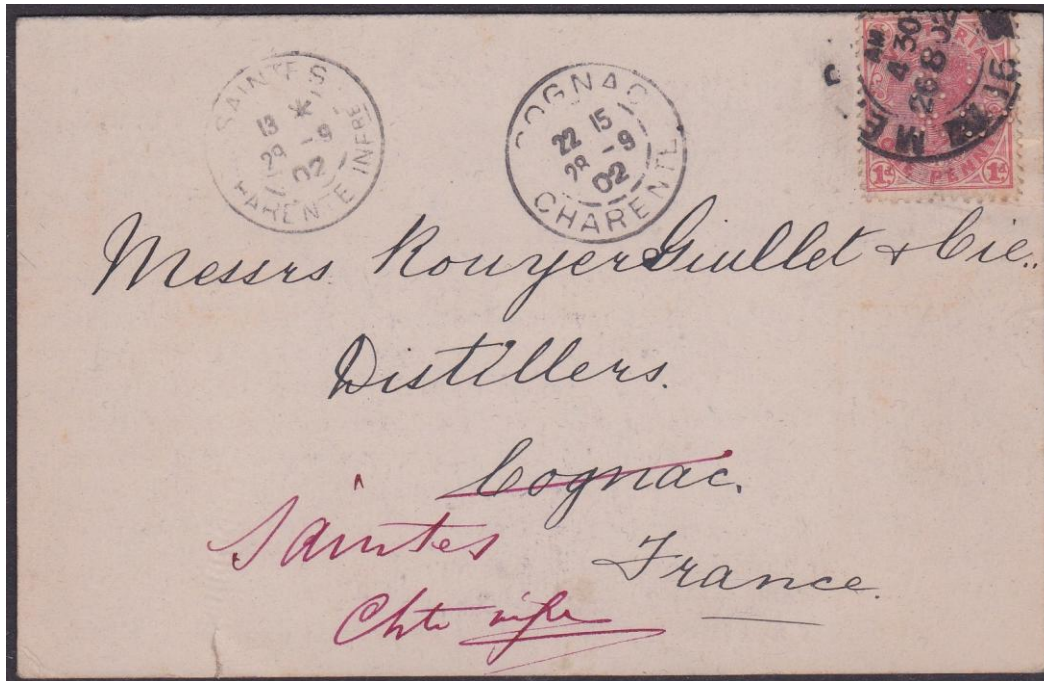 SAINTES
13 *
29 -9
02
CHARENTE INFRE
COGNAC
22 15
28 -9
02
CHARENTE
AM
4 30
26 8 02
16
1d PENNY 1d
Messrs. Rouyer Guillet & Cie.,
Distillers.
Cognac.
Saintes
France.
Chte infre